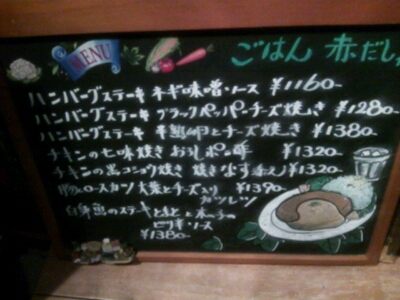 MENU
ごはん 赤だし
ハンバーグステーキ ネギ味噌ソース ¥1160-
ハンバーグステーキ ブラックペッパーチーズ焼き ¥1280-
ハンバーグステーキ 半熟卵とチーズ焼き ¥1380-
チキンの七味焼き おろしポン酢 ¥1320-
チキンの黒コショウ焼き 焼きなす添え ¥1320-
ロースカツ 大葉とチーズ入り ¥1390-
カツレツ
白身 のステーキ
ソース
¥1380-